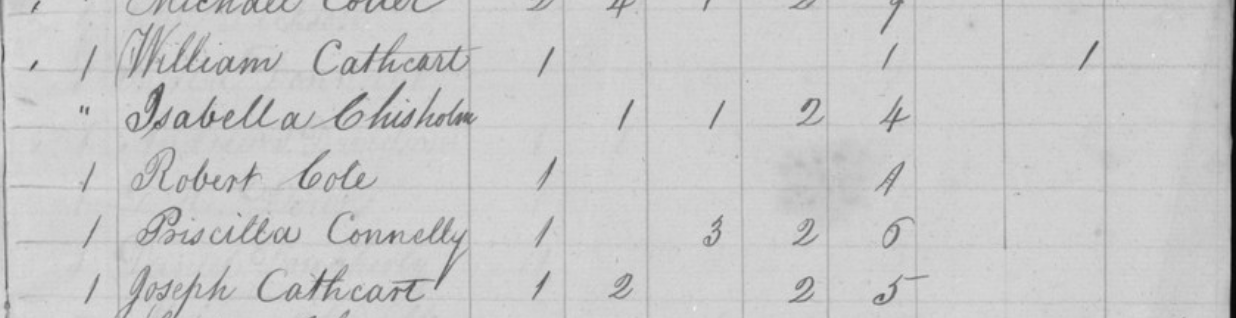 Michael Coller 2 4 1 2 9
1 William Cathcart 1 1 1
" Isabella Chisholm 1 1 2 4
1 Robert Cole 1 1
1 Priscilla Connelly 1 3 2 6
1 Joseph Cathcart 1 2 2 5